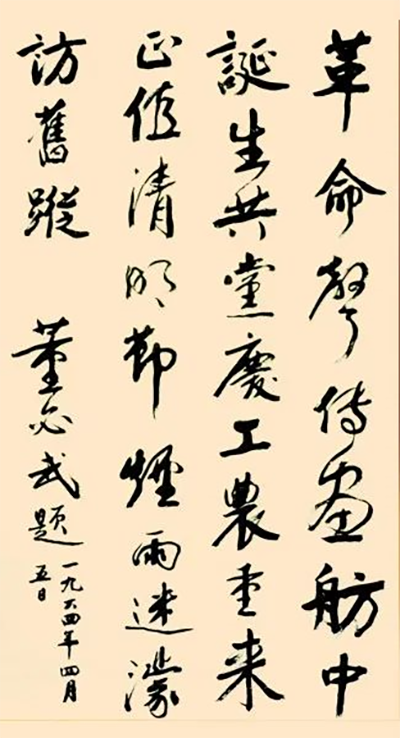 革命聲傳畫舫中
誕生共黨慶工農重來
正值清明節煙雨迷濛
訪舊蹤 董必武題
一九六四年四月
五日